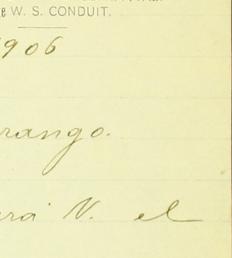 e W. S. CONDUIT.
1906
rango.
ará N. el